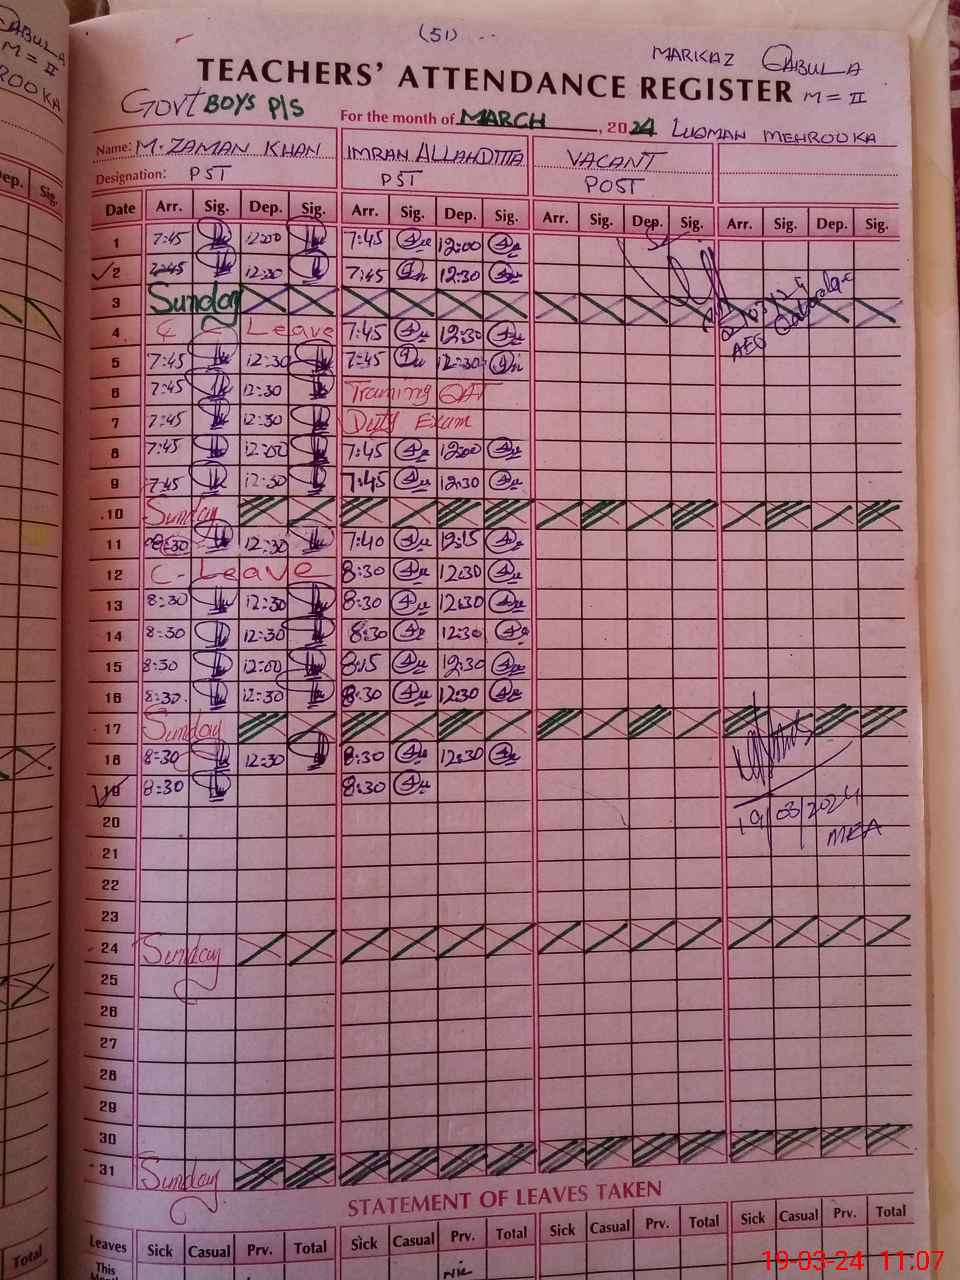 (51)
MARKAZ QABULA
TEACHERS' ATTENDANCE REGISTER M = II
Govt BOYS P/S For the month of MARCH, 2024 LUQMAN MEHROOKA
Name: M. ZAMAN KHAN IMRAN ALLAHDITTA VACANT
Designation: PST PST POST
Date Arr. Sig. Dep. Sig. Arr. Sig. Dep. Sig. Arr. Sig. Dep. Sig. Arr. Sig. Dep. Sig.
1 7:45 12:00 7:45 12:00
2 7:45 12:30 7:45 12:30
3 Sunday
4 Leave 7:45 12:30
AEO
5 7:45 12:30 7:45 12:30
6 7:45 12:30 Training QAT
7 7:45 12:30 Duty Exam
8 7:45 12:00 7:45 12:00
9 7:45 12:30 7:45 12:30
10 Sunday
11 8:30 12:30 7:40 12:15
12 C- Leave 8:30 12:30
13 8:30 12:30 8:30 12:30
14 8:30 12:30 8:30 12:30
15 8:30 12:00 8:15 12:30
16 8:30 12:30 8:30 12:30
17 Sunday
18 8:30 12:30 8:30 12:30
19 8:30 8:30
20 19/03/2024
MEA
21
22
23
24 Sunday
25
26
27
28
29
30
31 Sunday
STATEMENT OF LEAVES TAKEN
Leaves Sick Casual Prv. Total Sick Casual Prv. Total Sick Casual Prv. Total Sick Casual Prv. Total
This
Nil
19-03-24 11:07